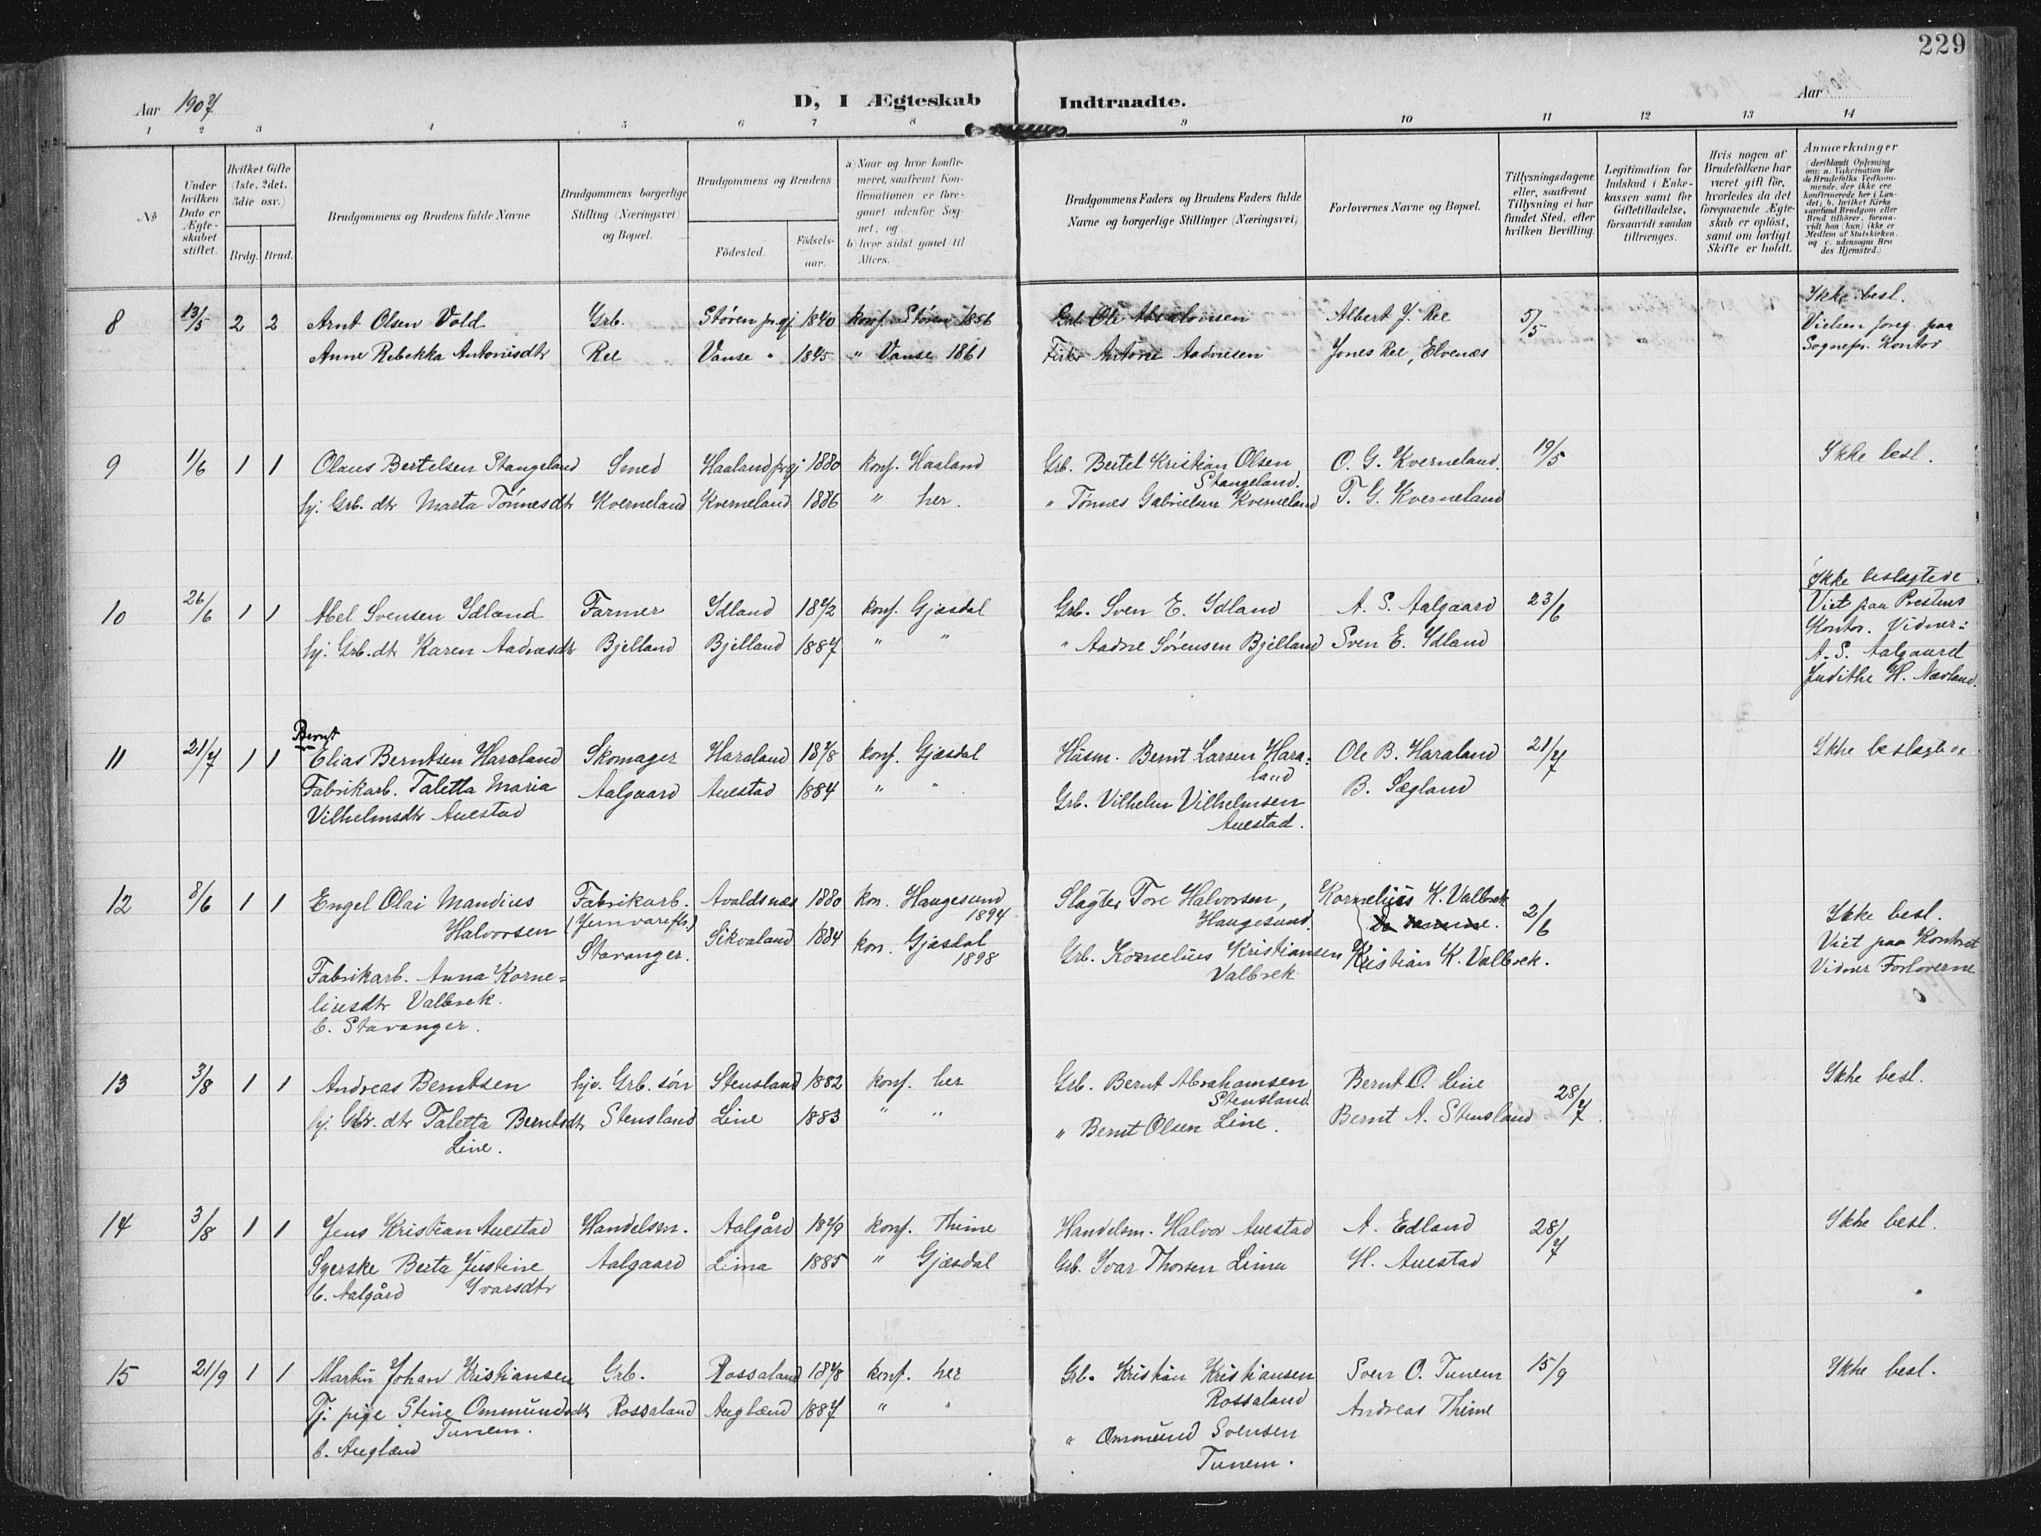 229
Aar 1907
D, I Ægteskab
Indtraadte.
Aar
1 2 3 4 5 6 7 8 9 10 11 12 13 14
No
Under hvilken Dato er Ægteskabet stiftet.
Hvilket Gifte (1ste, 2det, 3die osv.)
Brdg. Brud.
Brudgommens og Brudens fulde Navne
Brudgommens borgerlige Stilling (Næringsvei) og Bopæl.
Brudgommens og Brudens
Fødested.
Fødsels-aar.
a) Naar og hvor konfirmeret, saafremt Konfirmationen er foregaaet udenfor Sognet, og
b) hvor sidst gaaet til Alters.
Brudgommens Faders og Brudens Faders fulde Navne og borgerlige Stillinger (Næringsvei)
Forlovernes Navne og Bopæl.
Tillysningsdagene eller, saafremt Tillysning ei har fundet Sted, efter hvilken Bevilling.
Legitimation for Indskud i Enkekassen samt for Giftetilladelse, forsaavidt saadan tiltrænges.
Hvis nogen af Brudefolkene har været gift før, hvorledes da det foregaaende Ægteskab er opløst, samt om lovligt Skifte er holdt.
Anmærkninger (deriblandt Oplysning om: a. Vaccination for de Brudefolks Vedkommende, der ikke ere konfirmerede her i Landet; b. hvilket Kirkesamfund Brudgom eller Brud tilhører, forsaavidt han (hun) ikke er Medlem af Statskirken, og c. udensogns Brudes Hjemsted.)
8 13/5 2 2 Arnt Olsen Vold Grb. Støren prgj 1840 konf. Støren 1856 Grb. Ole Abrahamsen Albert J. Ree 5/5 Ikke besl.
Anne Rebekka Antonisdtr Ree Vanse " 1845 " Vanse 1861 Antone Aadnesen Jones Ree, Elvenæs Vielsen foreg. paa
Sognepr. Kontor
9 1/6 1 1 Olaus Bertelsen Stangeland Smed Haaland prgj 1880 konf. Haaland Grb. Bertel Kristian Olsen O. G. Kverneland. 19/5 Ikke besl.
Stangeland.
hj. Grb. dtr Marta Tønnesdtr Kverneland Kverneland 1886 " her. " Tønnes Gabrielsen Kverneland T. G. Kverneland
10 26/6 1 1 Abel Svensen Idland Farmer Idland 1872 konf. Gjæsdal Grb. Sven E. Idland A. S. Aalgaard 23/6 Ikke beslægtede
Viet paa Prestens
hj. Grb. dtr Karen Aadnesdtr Bjelland Bjelland 1887 " " " Aadne Sørensen Bjelland Sven E. Idland Kontor. Vidner:
A. S. Aalgaard
Judithe H. Nærland.
Bernt
11 21/7 1 1 Elias Berntsen Haraland Skomager Haraland 1878 konf. Gjæsdal Husm. Bernt Larsen Hara- Ole B. Haraland 21/7 Ikke beslægtede
land
Fabrikarb. Taletta Maria Aalgaard Auestad 1884 " " Grb. Vilhelm Vilhelmsen B. Sægland
Vilhelmsdtr Auestad Auestad.
12 8/6 1 1 Engel Olai Mandius Fabrikarb. Avaldsnæs 1880 kon. Haugesund Slagter Tore Halvorsen, Kornelius K. Valbrek 2/6 Ikke besl.
Halvorsen (Jernvarefb.) 1894 Haugesund.
Stavanger. Sikvaland 1884 kon. Gjæsdal 1898 Grb. Kornelius Kristiansen Kristian K. Valbrek. Viet paa Kontoret
Valbrek Vidner Forloverne
Fabrikarb. Anna Korne-
liusdtr Valbrek.
b. Stavanger.
13 3/8 1 1 Andreas Berntsen hjv. Grb. søn Stensland 1882 konf. her Grb. Bernt Abrahamsen Bernt O. Line 28/7 Ikke besl.
Stensland
hj. Gbr. dtr Taletta Berntsdtr Stensland Line 1883 " " " Bernt Olsen Line. Bernt A. Stensland
Line.
14 3/8 1 1 Jens Kristian Auestad Handelsm. Aalgård 1879 konf. Thime Handelsm. Halvor Auestad A. Edland 28/7 Ikke besl.
Syerske Berta Justine Aalgaard Lima 1885 " Gjæsdal Grb. Ivar Thorsen Lima H. Auestad
b. Aalgård Ivarsdtr
15 21/9 1 1 Martin Johan Kristiansen Grb. Rossaland 1878 konf. her Grb. Kristian Kristiansen Sven O. Tunem 15/9 Ikke besl.
Rossaland
Tj. pige Stine Ommundsdtr Rossaland Auglænd 1887 " " Andreas Thime
Tunem.
b. Auglænd " Ommund Svensen
Tunem.